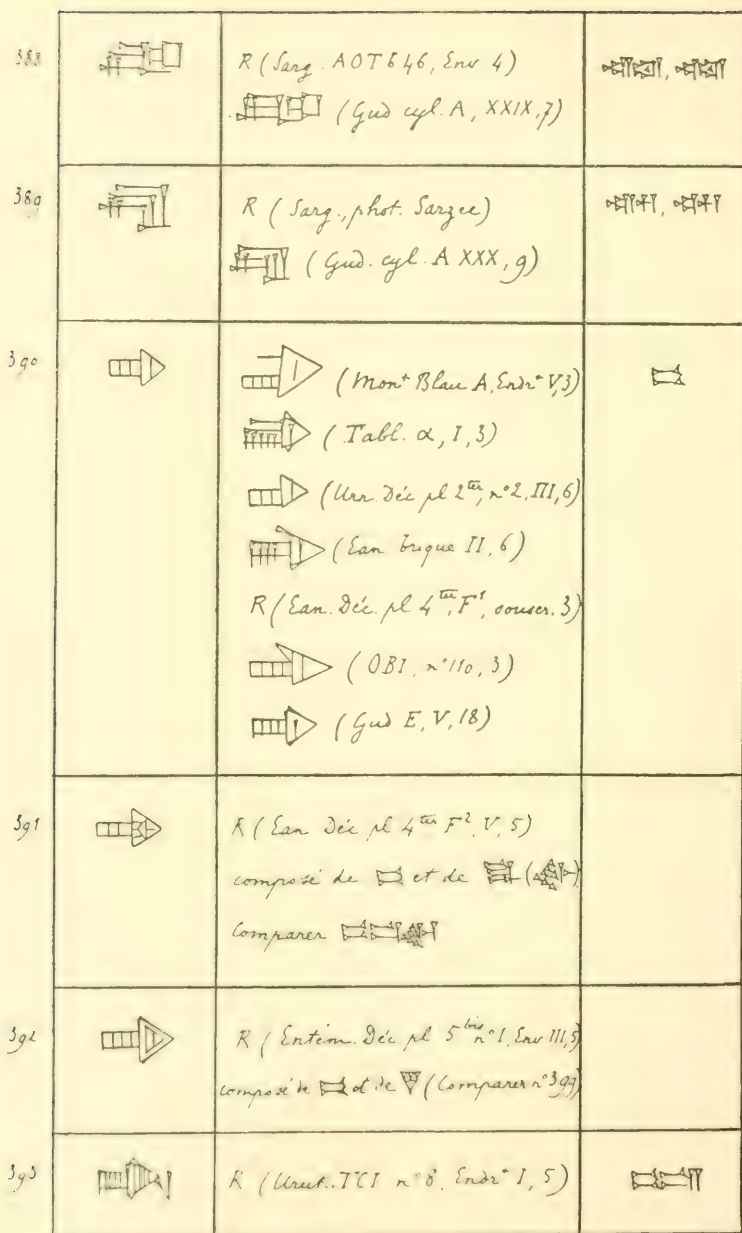 388
R (Sarg. AOT b 46, Env 4)
(Gud cyl. A, XXIX, 7)
389
R (Sarg., phot. Sarzec)
(Gud. cyl. A XXX, 9)
390
(Mon^t Blau A, Endr^t V, 3)
(Tabl. α, I, 3)
(Urn. Déc pl 2^ter, n° 2, III, 6)
(Ean brique II, 6)
R (Ean. Déc. pl 4^ter, F^1, souscr. 3)
(OBI, n° 110, 3)
(Gud E, V, 18)
391
R (Ean Déc pl 4^ter F^2, V, 5)
composé de et de
Comparer
392
R (Entém. Déc pl 5^bis n° 1, Env III, 5)
composé de et de (Comparer n° 399)
393
R (Uruk. TCI n° 8, Endr^t I, 5)